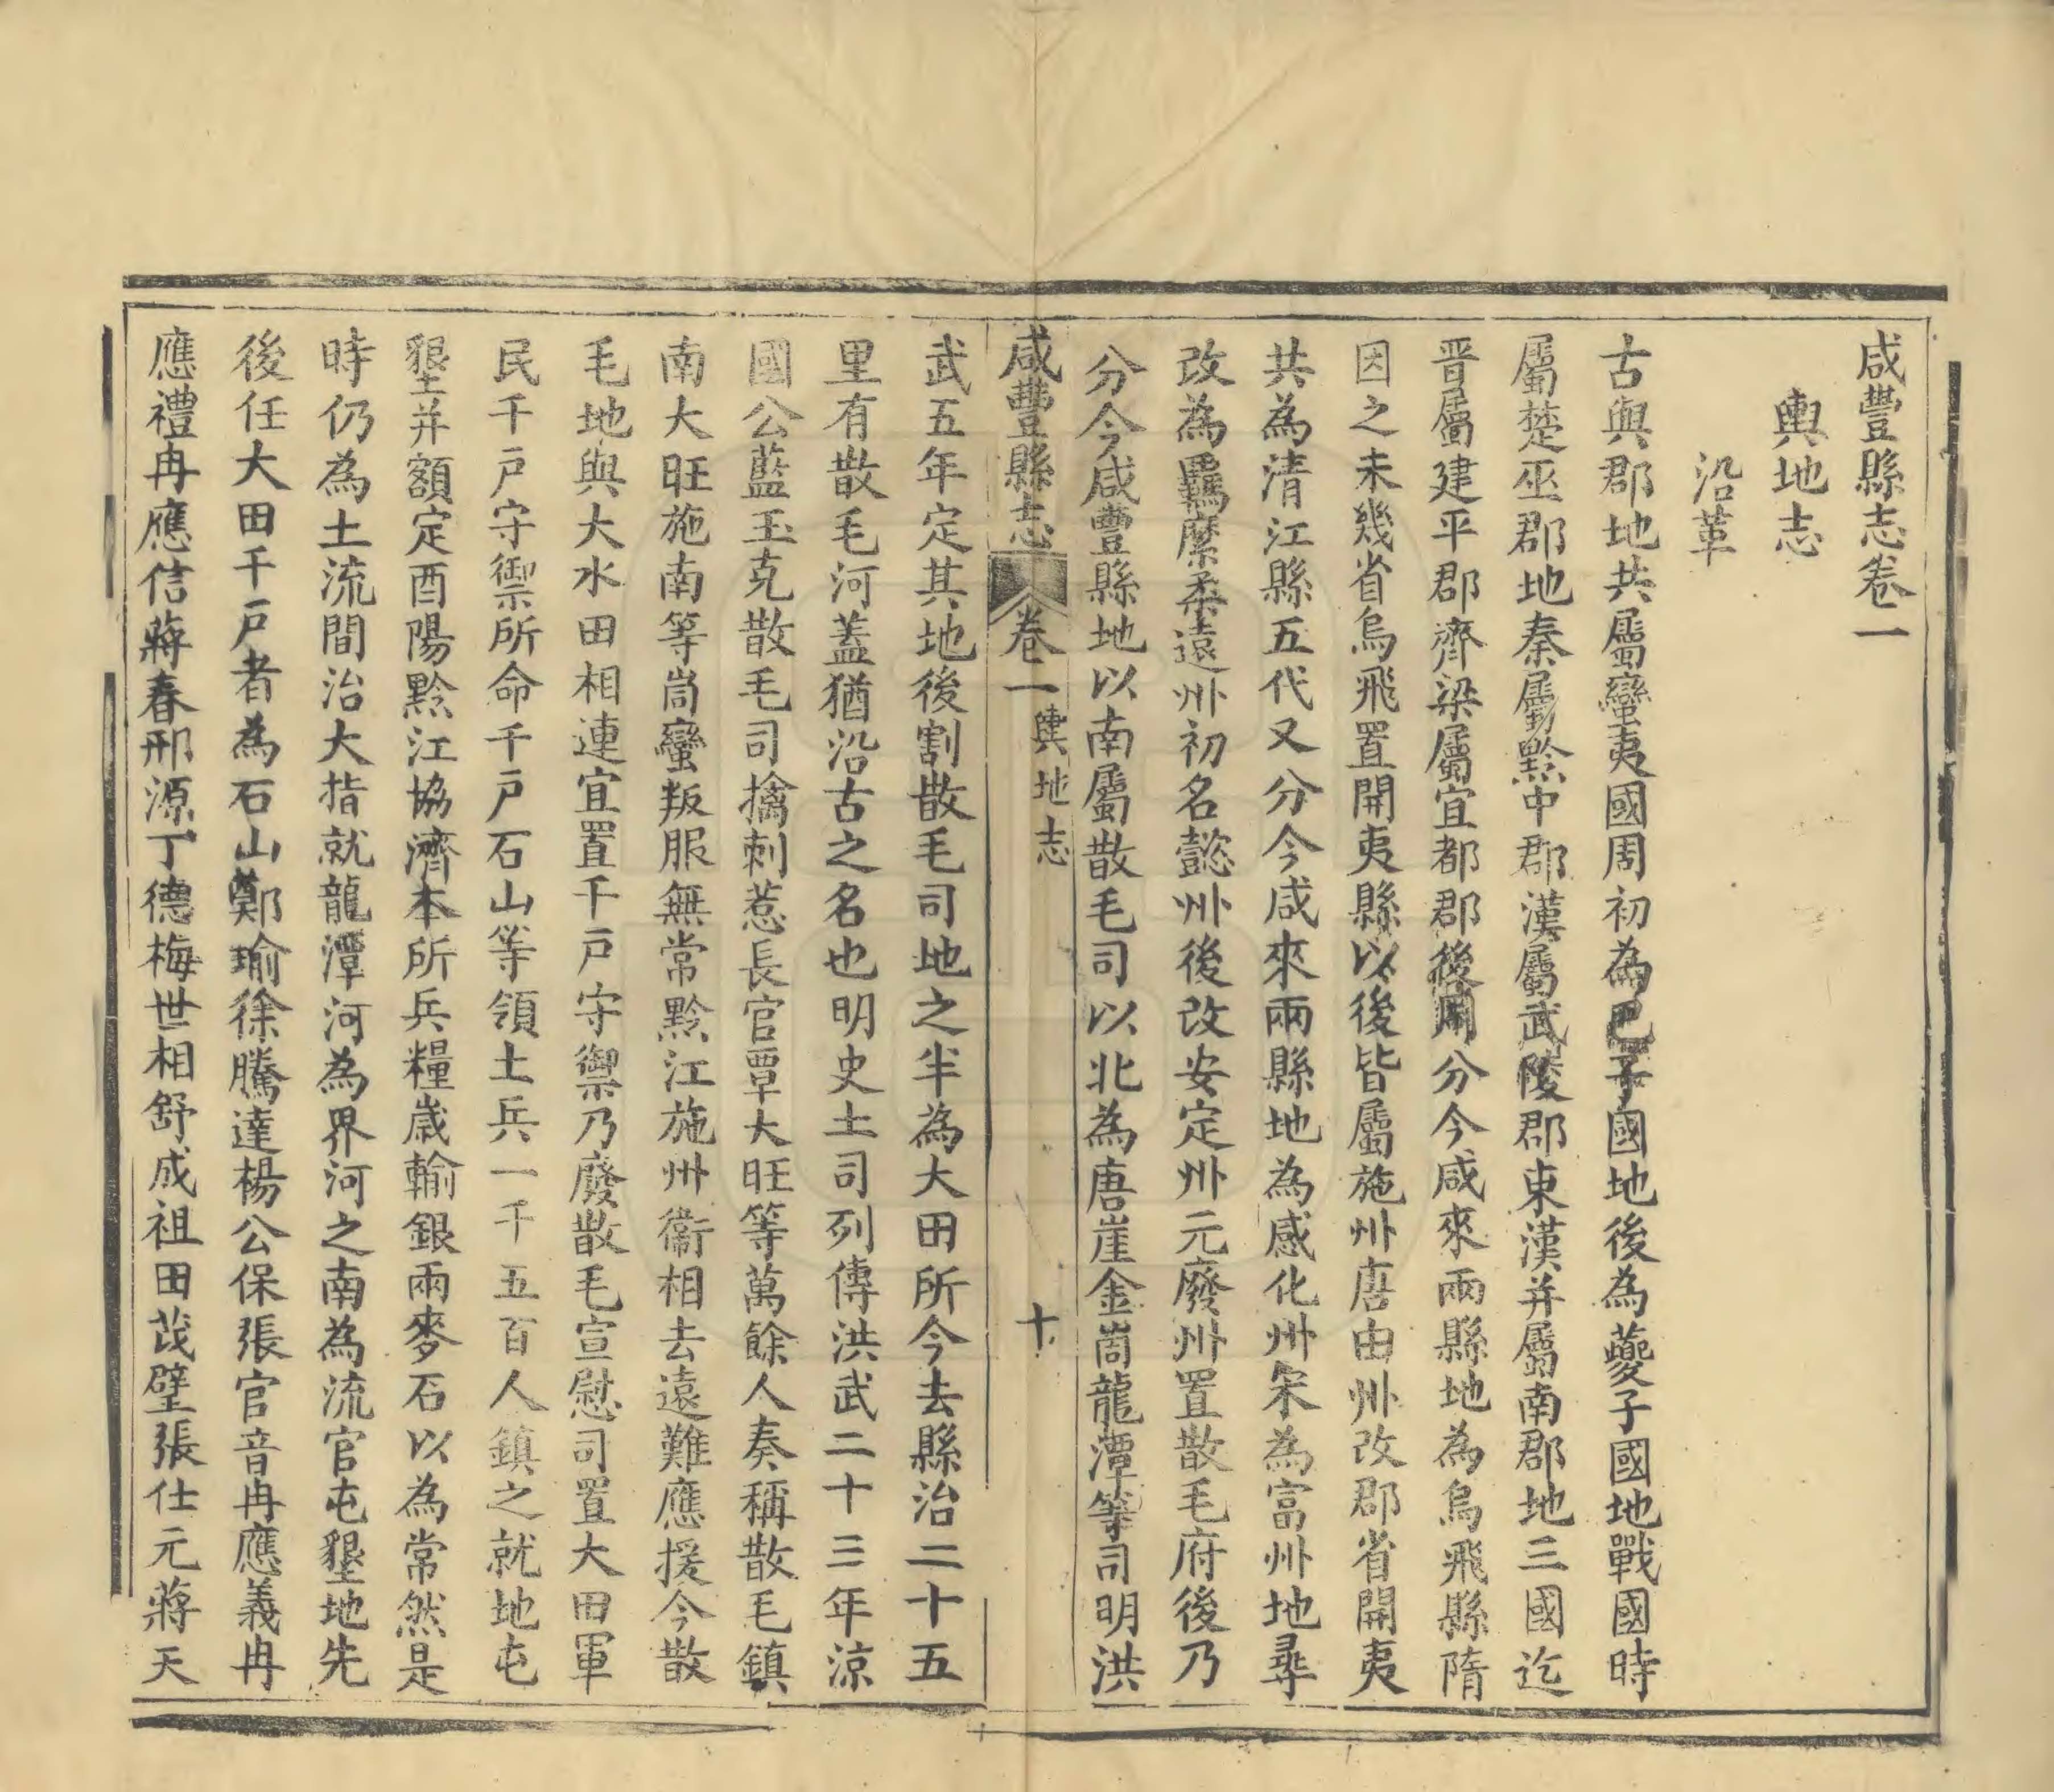 咸豐縣志卷一
輿地志
沿革
古與郡地共屬蠻夷國周初為巴子國地後為夔子國地戰國時
屬楚巫郡地秦屬黔中郡漢屬武陵郡東漢并屬南郡地三國迄
晋屬建平郡齊梁屬宜都郡後周分今咸來兩縣地為烏飛縣隋
因之未幾省烏飛置開夷縣以後皆屬施州唐由州改郡省開夷
共為清江縣五代又分今咸來兩縣地為感化州宋為富州地尋
改為羈縻柔遠州初名懿州後改安定州元廢州置散毛府後乃
分今咸豐縣地以南屬散毛司以北為唐崖金峝龍潭等司明洪
咸豐縣志 卷一 輿地志 十
武五年定其地後割散毛司地之半為大田所今去縣治二十五
里有散毛河蓋猶沿古之名也明史土司列傳洪武二十三年涼
國公藍玉克散毛司擒刺惹長官覃大旺等萬餘人奏稱散毛鎮
南大旺施南等峝蠻叛服無常黔江施州衞相去遠難應援今散
毛地與大水田相連宜置千戶守禦乃廢散毛宣慰司置大田軍
民千戶守禦所命千戶石山等領土兵一千五百人鎮之就地屯
墾并額定酉陽黔江協濟本所兵糧歲輸銀兩麥石以為常然是
時仍為土流間治大指就龍潭河為界河之南為流官屯墾地先
後任大田千戶者為石山鄭瑜徐騰達楊公保張官音冉應義冉
應禮冉應信蔣春邢源丁德梅世相舒成祖田茂壁張仕元蔣天